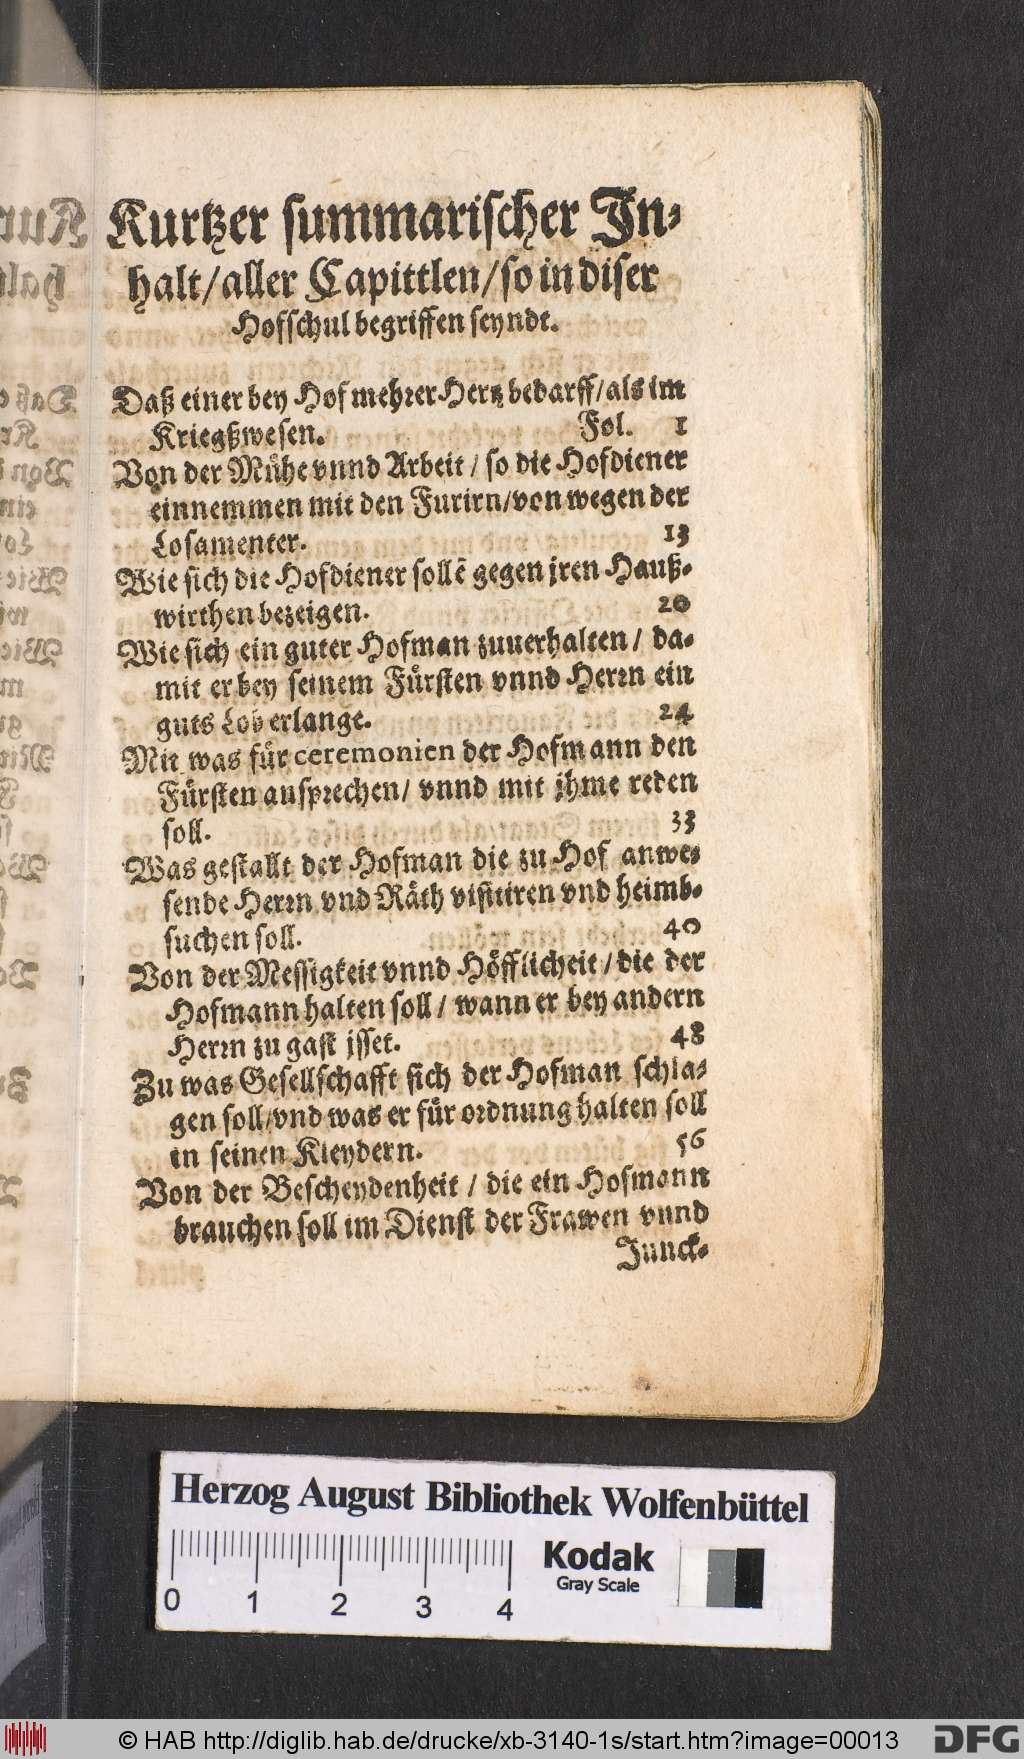 Kurtzer summarischer In-
halt/aller Capittlen/so in diser
Hofschul begriffen seyndt.
Daß einer bey Hof mehrer Hertz bedarff/als im
Kriegßwesen. Fol. 1
Von der Mühe vnnd Arbeit / so die Hofdiener
einnemmen mit den Furirn/von wegen der
Losamenter. 13
Wie sich die Hofdiener sollē gegen jren Hauß-
wirthen bezeigen. 20
Wie sich ein guter Hofman zuuerhalten / da-
mit er bey seinem Fürsten vnnd Herrn ein
guts Lob erlange. 24
Mit was für ceremonien der Hofmann den
Fürsten ansprechen/ vnnd mit jhme reden
soll. 33
Was gestallt der Hofman die zu Hof anwe-
sende Herrn vnd Räth visitiren vnd heimb-
suchen soll. 40
Von der Messigkeit vnnd Höfflicheit / die der
Hofmann halten soll / wann er bey andern
Herrn zu gast jsset. 48
Zu was Gesellschafft sich der Hofman schla-
gen soll/vnd was er für ordnung halten soll
in seinen Kleydern. 56
Von der Bescheydenheit / die ein Hofmann
brauchen soll im Dienst der Frawen vnnd
Junck-
Herzog August Bibliothek Wolfenbüttel
Kodak
Gray Scale
0 1 2 3 4
© HAB http://diglib.hab.de/drucke/xb-3140-1s/start.htm?image=00013
DFG